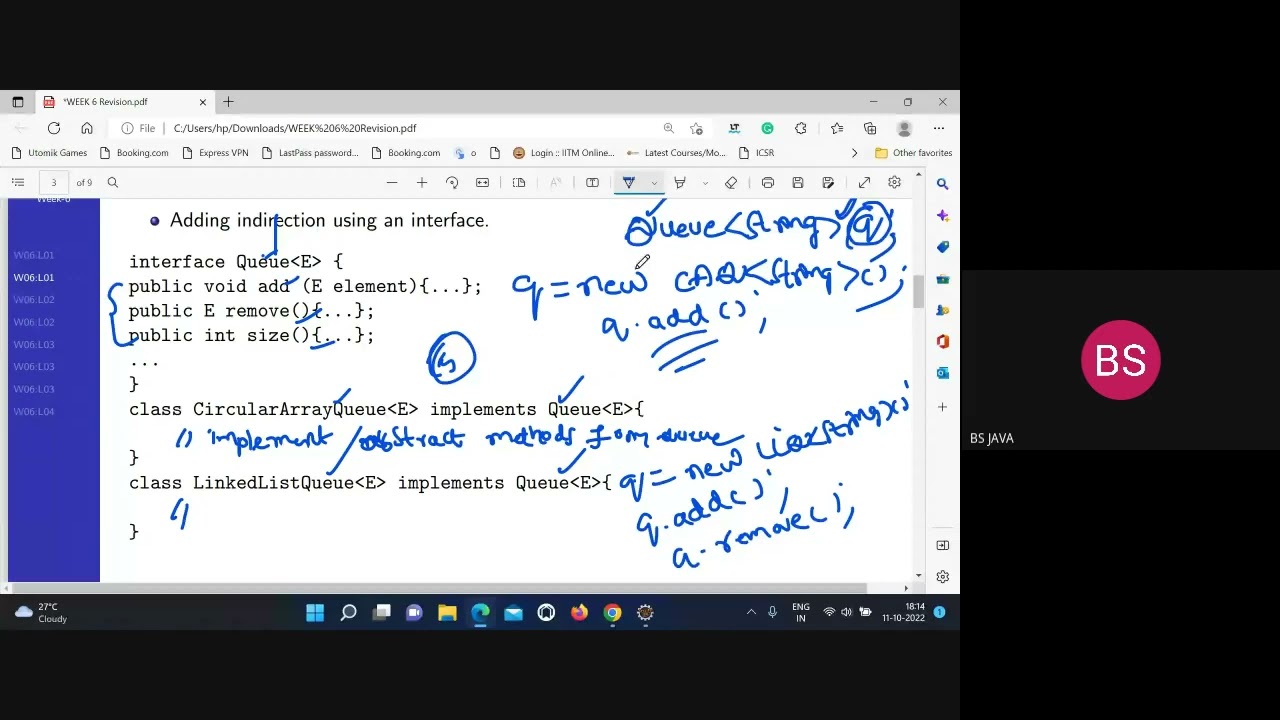 *WEEK 6 Revision.pdf
File C:/Users/hp/Downloads/WEEK%206%20Revision.pdf
Utomik Games Booking.com Express VPN LastPass password... Booking.com o Login :: IITM Online... Latest Courses/Mo... ICSR Other favorites
3 of 9
Week-6
W06:L01
W06:L01
W06:L02
W06:L02
W06:L03
W06:L03
W06:L03
W06:L04
Adding indirection using an interface.
Queue<String> q;
interface Queue<E> {
public void add (E element){...};
public E remove(){...};
public int size(){...};
...
}
q = new CAQ<String>();
q.add();
class CircularArrayQueue<E> implements Queue<E>{
// implement abstract methods from queue
}
class LinkedListQueue<E> implements Queue<E>{
//
}
q = new LLQ<String>();
q.add();
q.remove();
BS
BS JAVA
27°C
Cloudy
ENG
IN
18:14
11-10-2022
1